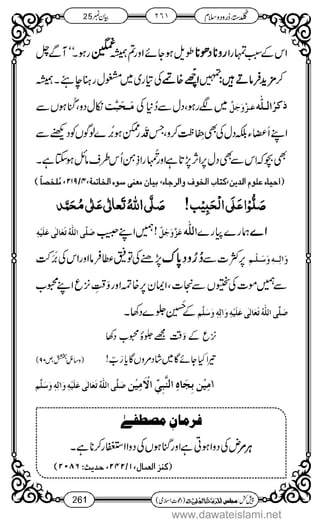 گلدستۂ دُرود و سلام ٢٦١ بیان نمبر 25
اس کے سبب تمہارا رونا دھونا طویل ہو جائے اور تم ہمیشہ غمگین رہو۔’’ آگے چل
کر مزید فرماتے ہیں: تمہیں اچھے خاتمے کی تیاری میں مشغول رہنا چاہئے۔ ہمیشہ
ذکرُ اللہ عَزَّوَجَلَّ میں لگے رہو، دل سے دُنیا کی مَحَبَّت نکال دو، گناہوں سے
اپنے اعضاء بلکہ دل کی بھی حفاظت کرو، جس قدر ممکن ہو بُرے لوگوں کو دیکھنے سے
بھی بچو کہ اس سے بھی دل پر اثر پڑتا ہے اور تمہارا ذِہن اُس طرف مائل ہو سکتا ہے۔
(احیاء علوم الدین، کتاب الخوف والرجاء، بیان معنی سوء الخاتمۃ، ٢١٩/٤، مُلخصاً)
صَلُّوْا عَلَی الْحَبِیْب! صَلَّی اللہُ تَعَالٰی عَلٰی مُحَمَّد
اے ہمارے پیارے اللہ عَزَّوَجَلَّ! ہمیں اپنے حبیب صَلَّی اللہُ تَعَالٰی عَلَیْہِ
وَاٰلِہٖ وَسَلَّم پر کثرت سے دُرودِ پاک پڑھنے کی توفیق عطا فرما اور اس کی بَرَکت
سے ہمیں موت کی سختیوں سے نجات، ایمان پر خاتمہ اور وقتِ نزع اپنے محبوب
صَلَّی اللہُ تَعَالٰی عَلَیْہِ وَاٰلِہٖ وَسَلَّم کے حَسین جلوے دکھا۔
نزع کے وقت مجھے جلوۂ محبوب دکھا
تیرا کیا جائے گا میں شاد مروں گا یا رب! (وسائلِ بخشش، ص ٩٠)
اٰمِیْن بِجَاہِ النَّبِیِّ الْاَمِیْن صَلَّی اللہُ تَعَالٰی عَلَیْہِ وَاٰلِہٖ وَسَلَّم
فرمانِ مصطفےٰ
ہر مرض کی دوا ہوتی ہے اور گناہوں کی دوا استغفار کرنا ہے۔
(کنز العمال، ٢٤٢/١، حدیث: ٢٠٨٦)
261 پیش کش: مجلس المدینۃ العلمیۃ (دعوتِ اسلامی)
www.dawateislami.net